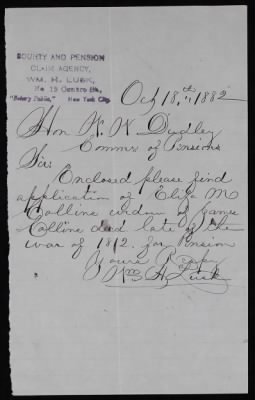 BOUNTY AND PENSION
CLAIM AGENCY,
WM. H. LUSK,
No 15 Centre St.,
"Notary Public," New York City.
Oct 18,th 1882
Hon W. W. Dudley
Commr of Pensions
Sir:
Enclosed please find
application of Eliza M
Collins widow of James
Collins decd late of the
war of 1812. for Pension
Yours Respy
Wm H. Lusk